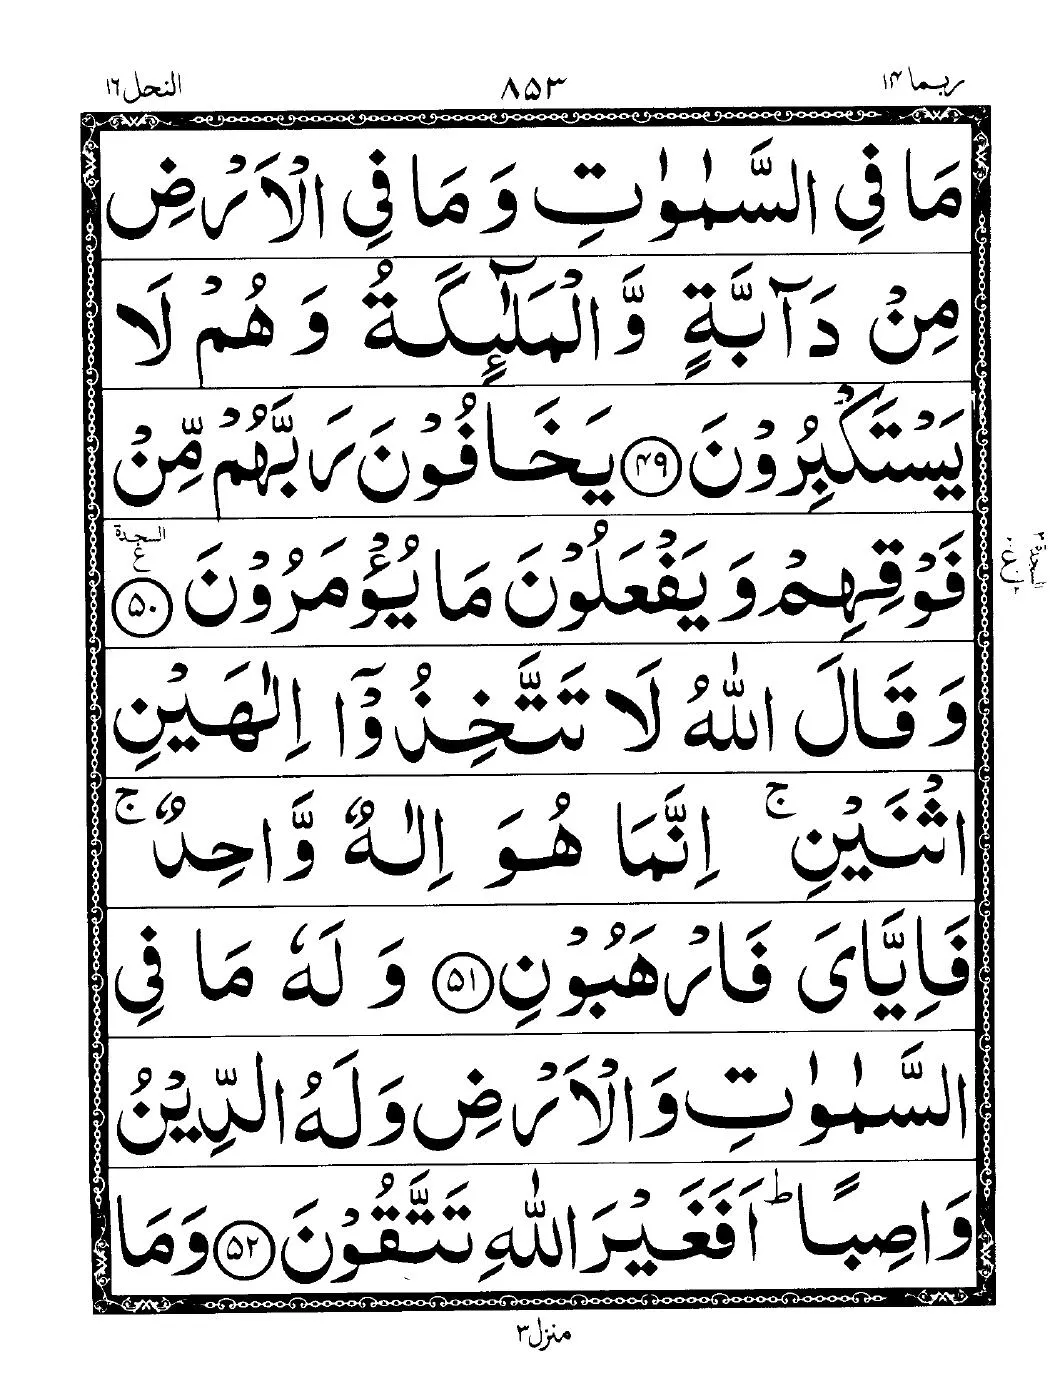 ربما ١٤ ٨٥٣ النحل ١٦
مَا فِي السَّمٰوٰتِ وَ مَا فِي الْاَرْضِ
مِنْ دَآبَّةٍ وَّ الْمَلٰٓئِكَةُ وَ هُمْ لَا
يَسْتَكْبِرُوْنَ ٤٩ يَخَافُوْنَ رَبَّهُمْ مِّنْ
فَوْقِهِمْ وَ يَفْعَلُوْنَ مَا يُؤْمَرُوْنَ ٥٠ السجدة ع
وَ قَالَ اللّٰهُ لَا تَتَّخِذُوْٓا اِلٰهَيْنِ
اثْنَيْنِ ۚ اِنَّمَا هُوَ اِلٰهٌ وَّاحِدٌ ۚ
فَاِيَّايَ فَارْهَبُوْنِ ٥١ وَ لَهٗ مَا فِي
السَّمٰوٰتِ وَ الْاَرْضِ وَ لَهُ الدِّيْنُ
وَاصِبًا ؕ اَفَغَيْرَ اللّٰهِ تَتَّقُوْنَ ٥٢ وَ مَا
منزل ٣